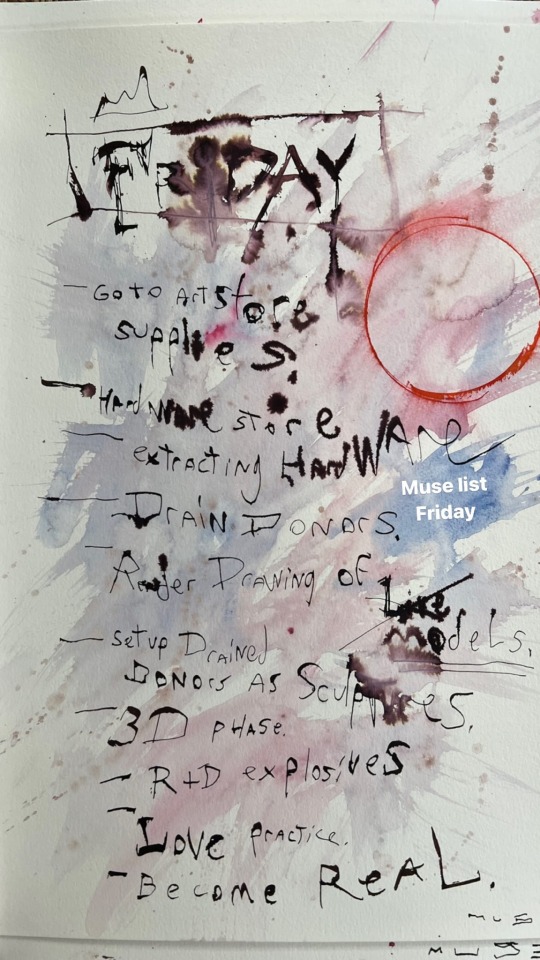 FRIDAY
- Go to Art Store
supplies.
- Hardware store
- extracting HardWare
- Drain Donors.
- Render Drawing of
Live
models.
- setup Drained
Donors As Sculptures.
- 3D pHASE.
- R+D explosives
- Love practice.
- Become ReAL.
Muse list
Friday
MUS
MUSE